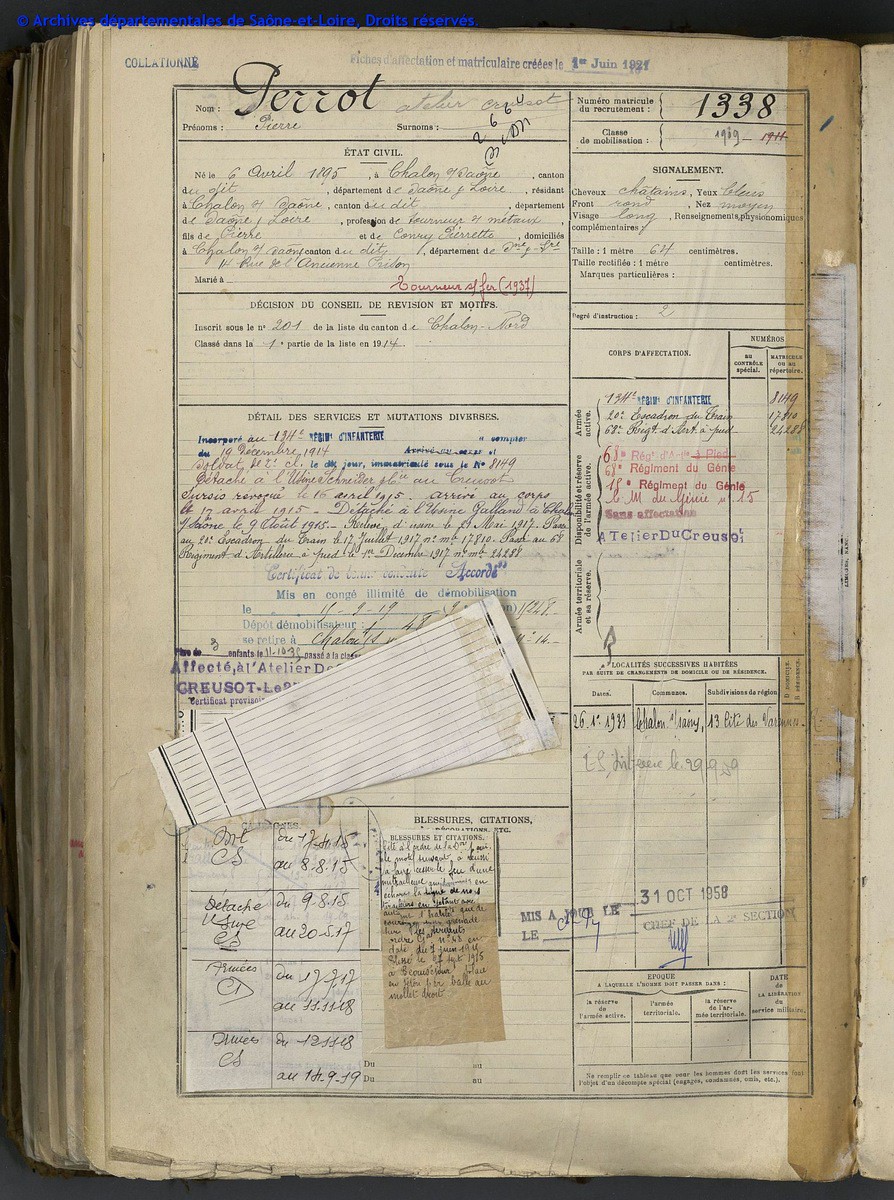 © Archives départementales de Saône-et-Loire, Droits réservés.
COLLATIONNÉ
Fiches d'affectation et matriculaire créées le 1er Juin 1921
Nom : Perrot
atelier creusot
Prénoms : Pierre Surnoms :
Numéro matricule du recrutement : 1338
Classe de mobilisation : 1909
ÉTAT CIVIL.
Né le 6 Avril 1895, à Chalon s/ Saône, canton
du dit, département de Saône & Loire, résidant
à Chalon s/ Saône, canton du dit, département
de Saône & Loire, profession de tourneur s/ métaux,
fils de Pierre et de Conry Pierrette, domiciliés
à Chalon s/ Saône canton du dit, département de Sne & Lre
14 Rue de l'Ancienne Prison
Marié à
Tourneur s/fer (1937)
SIGNALEMENT.
Cheveux châtains, Yeux bleus
Front rond, Nez moyen
Visage long, Renseignements physionomiques
complémentaires :
Taille : 1 mètre 64 centimètres.
Taille rectifiée : 1 mètre centimètres.
Marques particulières :
Degré d'instruction : 2
DÉCISION DU CONSEIL DE REVISION ET MOTIFS.
Inscrit sous le n° 201 de la liste du canton de Chalon-Nord
Classé dans la 1e partie de la liste en 1914.
CORPS D'AFFECTATION.
NUMÉROS
AU CONTRÔLE spécial.
MATRICULE OU AU répertoire.
Armée active.
134e RÉGIMt D'INFANTERIE 8149
20e Escadron du Train 17810
68e Rigt d'Art. à pied 24288
Disponibilité et réserve de l'armée active.
68e Régt d'Art à Pied
68e Régiment du Génie
18e Régiment du Génie
C M du Génie n° 15
Sans affectation
ATelier Du Creusot
Armée territoriale et sa réserve.
DÉTAIL DES SERVICES ET MUTATIONS DIVERSES.
Incorporé au 134e RÉGIMt D'INFANTERIE à compter
du 19 Décembre 1914 Arrivé au corps
Soldat de 2e cl. le dit jour, immatriculé sous le N° 8149
Détaché à l'Usine Schneider & Cie au Creusot
Sursis révoqué le 16 avril 1915. arrivé au corps
le 17 avril 1915 - Détaché à l'Usine Galland à Chalon
s/Saône le 9 Août 1915 - Relevé d'usine le 21 Mai 1917. Passé
au 20e Escadron du Train le 17 Juillet 1917 n° me 17810. Passé au 68e
Régiment d'Artillerie à pied le 1er Décembre 1917 n° me 24288
Certificat de bonne conduite "Accordé"
Mis en congé illimité de démobilisation
le 11-9-19
Dépôt démobilisateur : 48
se retire à Chalon s/
Père de 3 enfants le 11.10.35 passé à la classe
Affecté à l'Atelier De
CREUSOT-Le
Certificat provisoire
LOCALITÉS SUCCESSIVES HABITÉES
PAR SUITE DE CHANGEMENTS DE DOMICILE OU DE RÉSIDENCE.
Dates. Communes. Subdivisions de région
26.1.1933 Chalon s/Saône, 13 Cité des Varennes
BLESSURES, CITATIONS,
DÉCORATIONS, ETC.
BLESSURES ET CITATIONS.
Int CS du 17.4.15 au 8.8.15
Détaché Usine CS du 9.8.15 au 20.5.17
Armées CD du 17.7.17 au 11.11.18
Armées CS du 12.11.18 au 14.9.19
Du au
Du au
31 OCT 1958
MIS A JOUR LE
CHEF DE LA 2e SECTION
LE
EPOQUE
A LAQUELLE L'HOMME DOIT PASSER DANS :
la réserve de l'armée active.
l'armée territoriale.
la réserve de l'armée territoriale.
DATE DE LA LIBÉRATION du service militaire.
Ne remplir ce tableau que pour les hommes dont les services font
l'objet d'un décompte spécial (engagés, condamnés, omis, etc.).